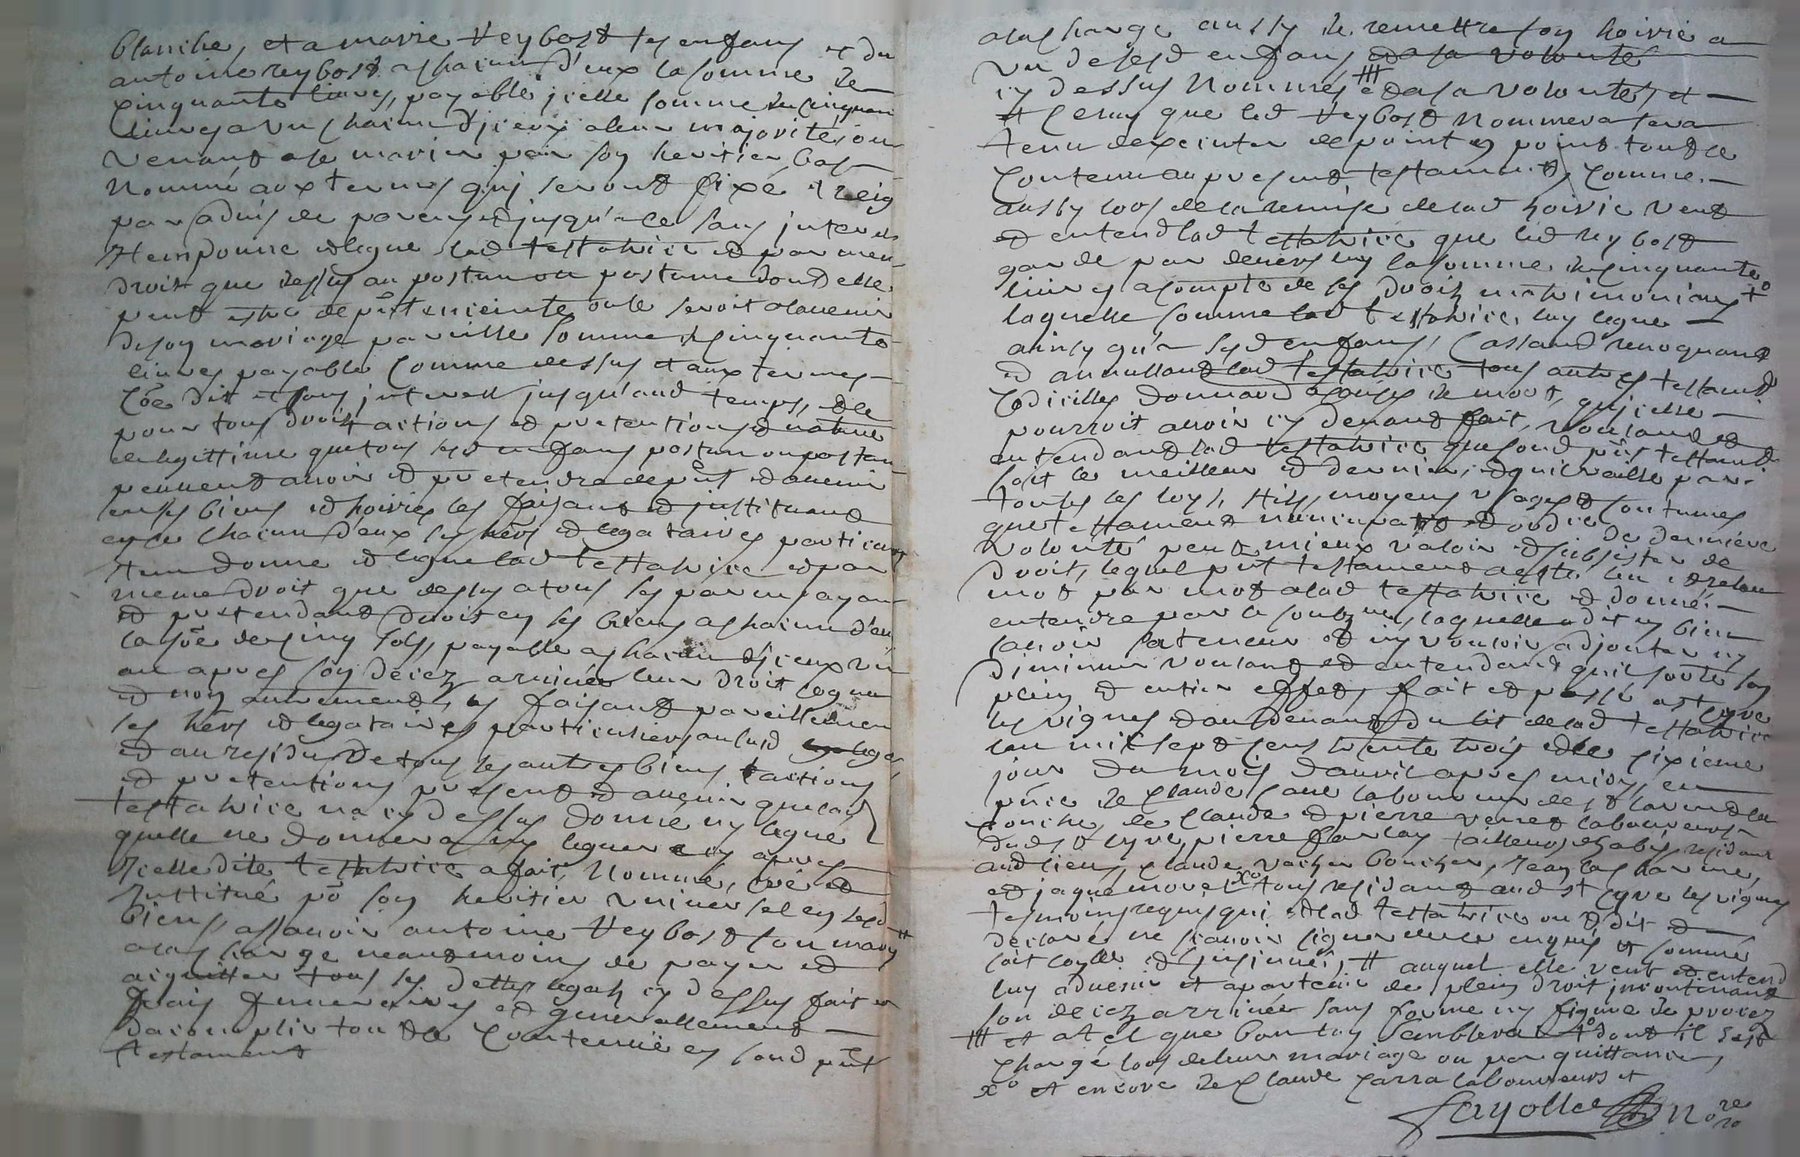 blanche, et a marie Reybost ses enfans et du
antoine reybost a chacun d'eux la somme de
cinquante livres, payable jcelle somme de cinquan
livres a un chacun d'jceux a leur majorité ou
venant a se marier par son heritier bas
nommé aux termes qui seront fixé
par advis de parens et jusqu'a ce sans jnterest
Item donne et legue lad testatrice et par mem
droit que dessus au postum ou postume dont elle
peut estre de pnt enceinte ou le seroit a lavenir
de son mariage pareille somme de cinquante
livres payable comme dessus et aux termes
dit et sans jnterest jusqu'aud temps, et le
pour tous droits actions et pretentions et nature
de legittime que tous sesd enfans postum ou postum
peuvent avoir et pretendre de pnt et avenir
en ses biens et hoirie les faisant et jnstituant
en ce chacun d'eux ses hers et legataires particuliers
Item donne et legue lad testatrice et par
meme droit que dessus a tous ses parens ayant
et pretendant droit en ses biens a chacun d'eux
la soe de cinq sols, payable a chacun d'jceux un
an apres son decez arrivée leur droit legue
et non autrement, les faisant pareillement
ses hers et legataires particuliers aud legat
et au residu de tous ses autres biens actions
et pretentions present et avenir que lad
testatrice na cy dessus donne ny legue
quelle ne donnera ny leguera cy apres
jcelle dite testatrice a fait, nommé, créé et
jnstitué po son heritier universel en sesd
biens, assavoir antoine Reybost son mary #
a la charge neantmoins de payer et
acquitter tous ses dettes legats cy dessus fait et
frais funeraires et generallement
daccomplir tout le contenue en sond pnt
testament
a la charge aussy de remettre son hoirie a
un de sesd enfans
cy dessus nommés # et a sa volonte, et
et celuy que led Reybost nommera sera
tenu dexecuter de point en point tout le
contenu au present testament, comme
aussy lors de la remise de lad hoirie veut
et entend lad testatrice que led reybost
garde par devers luy la somme de cinquante
livres a compte de ses droits matrimoniaux +o
laquelle somme lad testatrice luy legue
ainsy qu'a sesd enfans, cassant revoquant
et annullant lad testatrice tous autres testaments
codicilles donnaon a cause de mort, qu'jcelle
pourroit avoir cy devant fait, voulant et
entendant lad testatrice que sond pnt testament
soit le meilleur et dernier, et qu'il vaille par
toutes les loys, stils, moyens usages et coutumes
que testament nuncupatif et ordre de derniere
volonté peut mieux valoir et subsister de
droit, lequel pnt testament a esté leu et releu
mot par mot a lad testatrice et donné
entendre par le soubzné, laquelle a dit y bien
savoir la teneur et ny vouloir adjouter ny
diminuer voulant et entendant qu'il sorte son
plein et entier effet, fait et passé a st cyre
les vignes au devant du lit de lad testatrice
lan mil sept cens trente trois et le sixieme
jour du mois d'avril apres midy, en
pnce de claude laboureur de st laurend la
conche, de claude et pierre laboureurs
dud st cyre, pierre tailleur d'habis residant
aud lieu, claude vacher boucher, jean las
et jaque morel xo tous residant aud st cyre les vignes
tesmoins requis qui et lad testatrice ont dit et
declaré ne scavoir signer de ce enquis et sommé
soit et jnsinué, # auquel elle veut et entend
luy advenir et apartenir de plein droit jncontinant
son decez arrivée sans forme ny figure de procez
# et a tel que bon luy semblera +o dont il sest
chargé lors de leur mariage ou par quittance,
xo et encore de claude laboureurs et
fayolle nore
ro